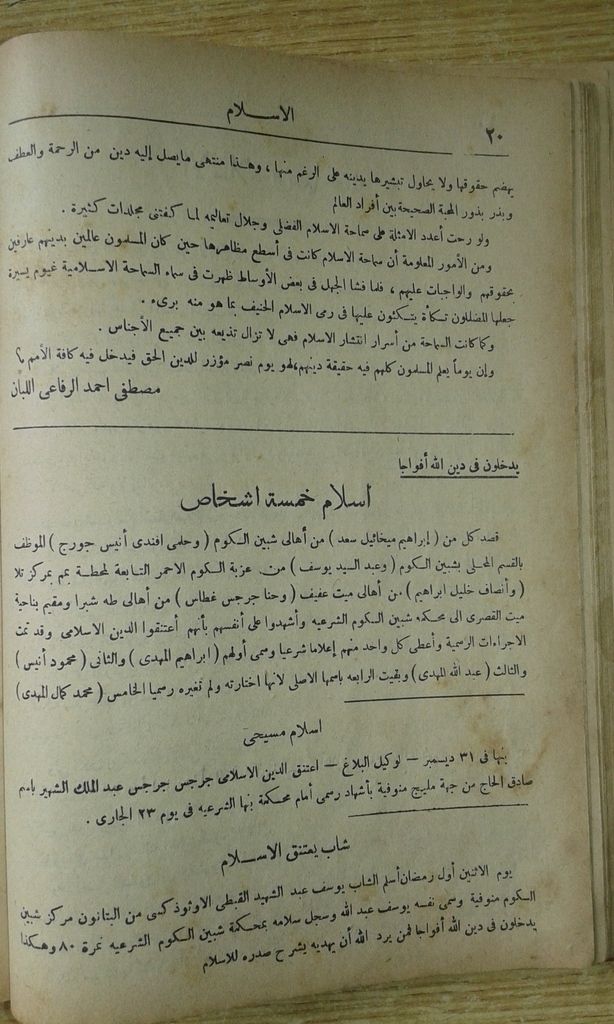 الاســـلام
٢٠
يهضم حقوقها ولا يحاول تبشيرها بدينه على الرغم منها ، وهـذا منتهى مايصل إليه دين من الرحمة والعطف
وبذر بذور المحبة الصحيحة بين أفراد العالم
ولو رحت أعدد الامثلة على سماحة الاسلام الفضلى وجلال تعاليمه لما كفتنى مجلدات كثيرة .
ومن الأمور المعلومة أن سماحة الاسلام كانت فى أسطع مظاهرها حين كان المسلمون عالمين بدينهم عارفين
بحقوقهم والواجبات عليهم ، فلما فشا الجهل فى بعض الأوساط ظهرت فى سماء السماحة الاسلامية غيوم يسيرة
جعلها المضللون تكأة يتكئون عليها فى رمى الاسلام الحنيف بما هو منه برىء .
وكما كانت السماحة من أسرار انتشار الاسلام فهى لا تزال تذيعه بين جميع الأجناس .
وإن يوماً يعلم المسلمون كلهم فيه حقيقة دينهم، لهو يوم نصر مؤزر للدين الحق فيدخل فيه كافة الأمم
مصطفى احمد الرفاعى اللبان
يدخلون فى دين الله أفواجا
اسلام خمسة اشخاص
قصد كل من ( إبراهيم ميخائيل سعد ) من أهالى شبين الكوم ( وحلمى افندى أنيس جورج ) الموظف
بالقسم المحلى بشبين الكوم ( وعبد السيد يوسف ) من عزبة الكوم الاحمر التابعة لمحطة بمم بمركز تلا
( وأنصاف خليل ابراهيم ) من أهالى ميت عفيف ( وحنا جرجس غطاس ) من أهالى طه شبرا ومقيم بناحية
ميت القصرى الى محكمة شبين الكوم الشرعيه وأشهدوا على أنفسهم بأنهم أعتنقوا الدين الاسلامى وقد تمت
الاجراءات الرسمية وأعطى كل واحد منهم إعلاما شرعيا وسمى أولهم ( ابراهيم المهدى ) والثانى ( محمود أنيس )
والثالث ( عبد الله المهدى ) وبقيت الرابعه باسمها الاصلى لانها اختارته ولم تغيره رسميا الخامس ( محمد كمال المهدى )
اسلام مسيحى
بنها فى ٣١ ديسمبر — لوكيل البلاغ — اعتنق الدين الاسلامى جرجس جرجس عبد الملك الشهير باسم
صادق الحاج من جهة مليج منوفية بأشهاد رسمى أمام محكمة بنها الشرعيه فى يوم ٢٣ الجارى .
شاب يعتنق الاســـلام
يوم الاثنين أول رمضان أسلم الشاب يوسف عبد الشهيد القبطى الاوثوذكسى من البتانون مركز شبين
الكوم منوفية وسمى نفسه يوسف عبد الله وسجل سلامه بمحكمة شبين الكوم الشرعيه نمرة ٨٠ وهكذا
يدخلون فى دين الله أفواجا فمن يرد الله أن يهديه يشرح صدره للاسلام